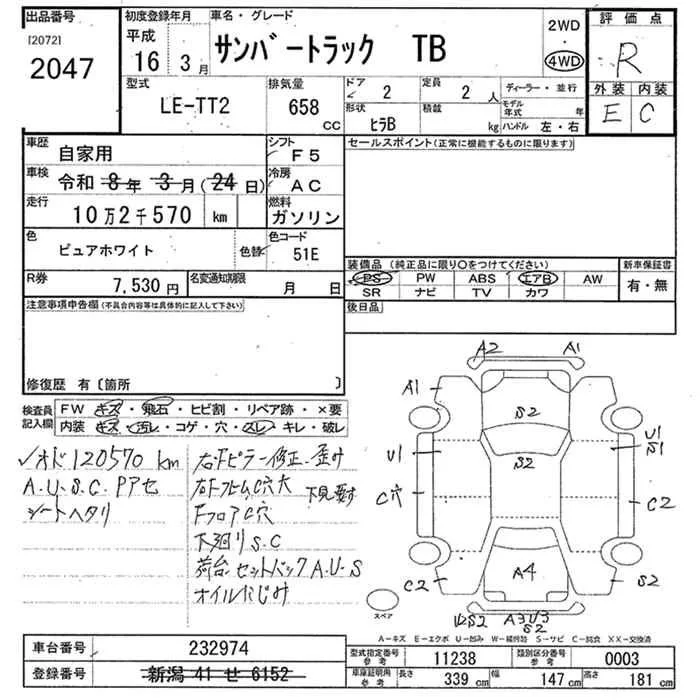 出品番号
[2072]
2047
初度登録年月
平成
16年 3月
車名・グレード
サンバートラック TB
2WD
・
4WD
評価点
R
外装 内装
E C
型式
LE-TT2
排気量
658
CC
ドア
2
定員
2 人
ディーラー・並行
形状
ヒラB
積載
kg
モデル年式 年
ハンドル 左・右
車歴
自家用
シフト
F5
車検
令和 8年 3月(24日)
冷房
AC
走行
10万2千570 km
燃料
ガソリン
色
ピュアホワイト
色替
色コード
51E
R券
7,530円
名変通知期限
月 日
セールスポイント(正常に機能するものに限ります)
装備品 (純正品に限り○をつけてください)
新車保証書
PS PW ABS エアB AW
SR ナビ TV カワ
有・無
後日品
注意事項申告欄(不具合内容等は具体的に記入して下さい)
修復歴 有〔箇所 〕
検査員記入欄
FW キズ・飛石・ヒビ割・リペア跡・×要
内装 キズ・汚レ・コゲ・穴・スレ・キレ・破レ
✓オド120570km
A.U.S.C.Pアセ
シートヘタリ
右Fピラー修正、歪み
右FフレムC穴大 下見要す
FフロアC穴
下廻りS.C
荷台セットバックA.U.S
オイルにじみ
A2 A1
A1
S2
U1
U1
S1
S2
C穴
C2
C2
A4
S2
U2S2
A3U3
S2
スペア
A-キズ E-エクボ U-凹み W-補修跡 S-サビ C-腐食 XX-交換済
車台番号
232974
登録番号
新潟 41 せ 6152
型式指定番号
参考
11238
類別区分番号
参考
0003
車庫証明用
参考
長さ
339 cm
幅
147 cm
高さ
181 cm